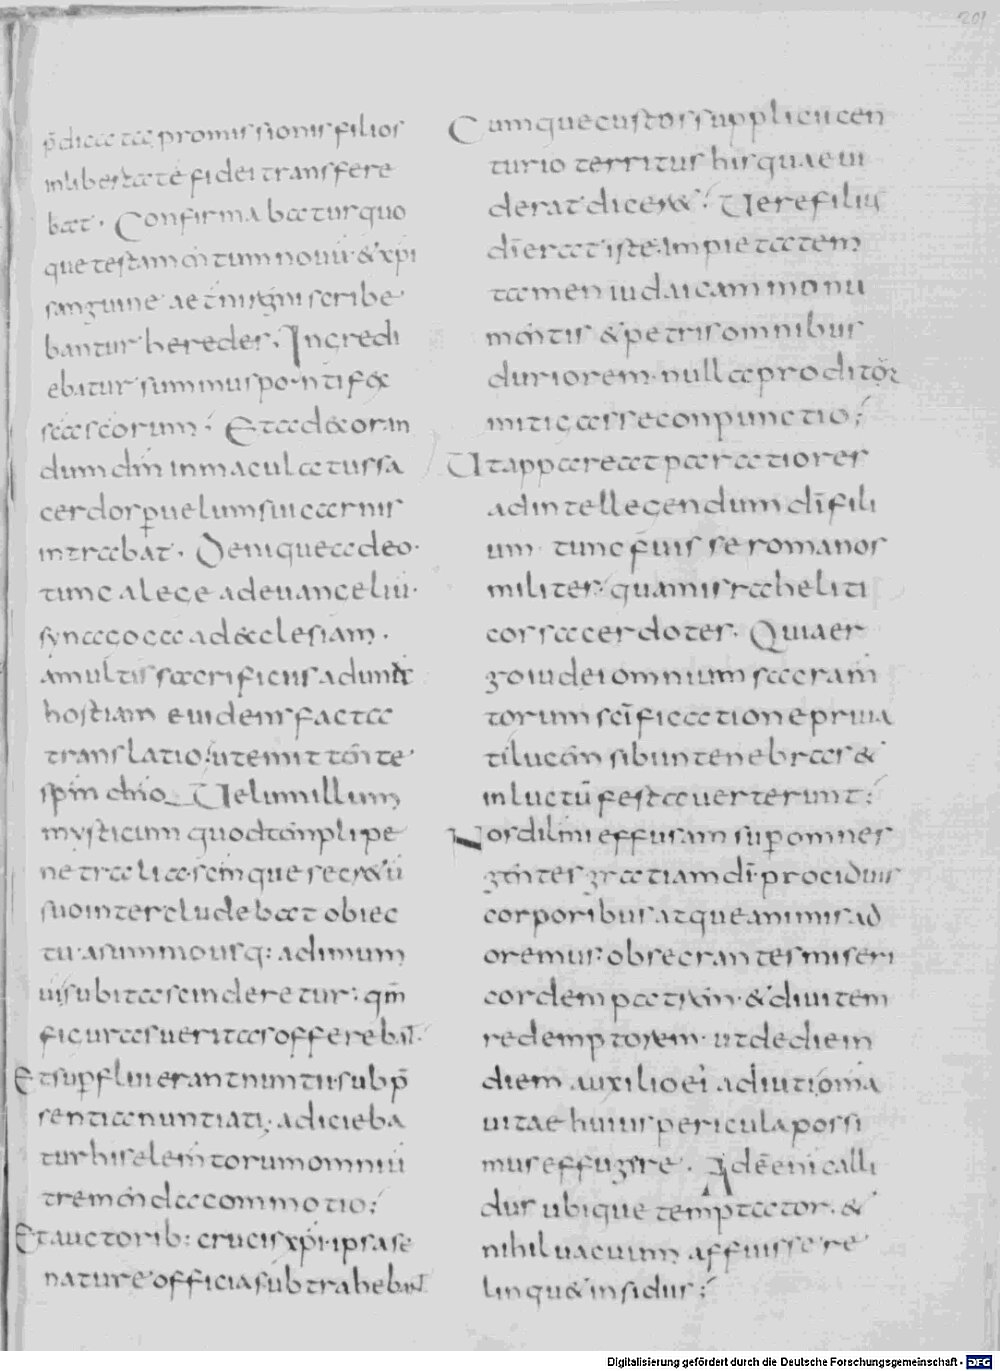 201
p̄dicatae promissionis filios
inlibertatē fidei transfere
bat. Confirmabatur quo
que testamn̄tum nouū. & xp̄i
sanguine aet̄ni regni scribe
bantur heredes. Incredi
ebatur summus pontifex
sc̄a sc̄orum. Et ad & oran
dum dm̄ inmaculatus sa
cerdos p̄uelum suae carnis
intrabat. Denique adeo
tunc a lege ad euangeliū.
synagoga ad &clesiam.
a multis sacrificiis ad unā
hostiam euidens facta
translatio. ut emittente
sp̄m dn̄o. Uelum illum
mysticum quod templi pe
netralia. semque secr&ū
suo intercludebat obiec
tu. a summo usq: ad imum
ui subita scinderetur: qm̄
figuras ueritas offerebat.
Et sup̄flui erant nuntii sub p̄
sentia nuntiati. adicieba
tur his elem̄torum omniū
tremn̄da commotio;
Et auctorib: crucis xp̄i. ipsa se
naturae officia subtrahebat
Cumque custos supplicii cen
turio territus his quae ui
derat dicer&; Uere filius
dī erat iste. Impietatem
tamen iudaicam monu
mn̄tis & petris omnibus
duriorem. nulla proditor̄
mitigasse conpunctio;
Ut appareat paratiores
ad intellegendum dī fili
um. tunc fuisse romanos
milites: quam israheliti
cos sacerdotes. Quia er
go iudei omnium sacram̄
torum sc̄ificatione priua
ti lucem sibi in tenebras &
in luctū festa uerterunt;
Nos dilm̄i effusam sup̄ omnes
gn̄tes gratiam dī. prociduis
corporibus atque animis ad
oremus: obsecrantes miseri
cordem patrem. & diuitem
redemptorem. ut de die in
diem auxilio ei adiuti omnia
uitae huius pericula possi
mus effugere. Adē eni calli
dus ubique temptator. &
nihil uacuum affuisse re
linqu& insidiis;
Digitalisierung gefördert durch die Deutsche Forschungsgemeinschaft - DFG